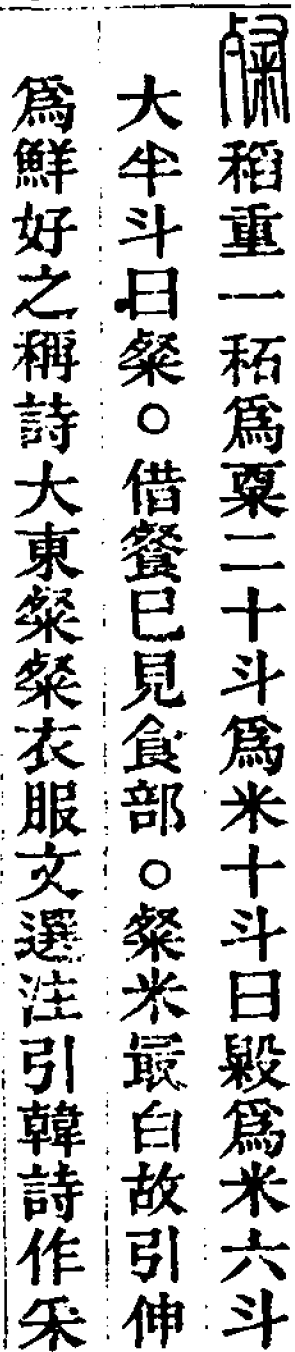 粲稻重一䄷爲粟二十斗爲米十斗曰毇爲米六斗
大半斗曰粲○借餐巳見食部○粲米最白故引伸
爲鮮好之稱詩大東粲粲衣服文選注引韓詩作采